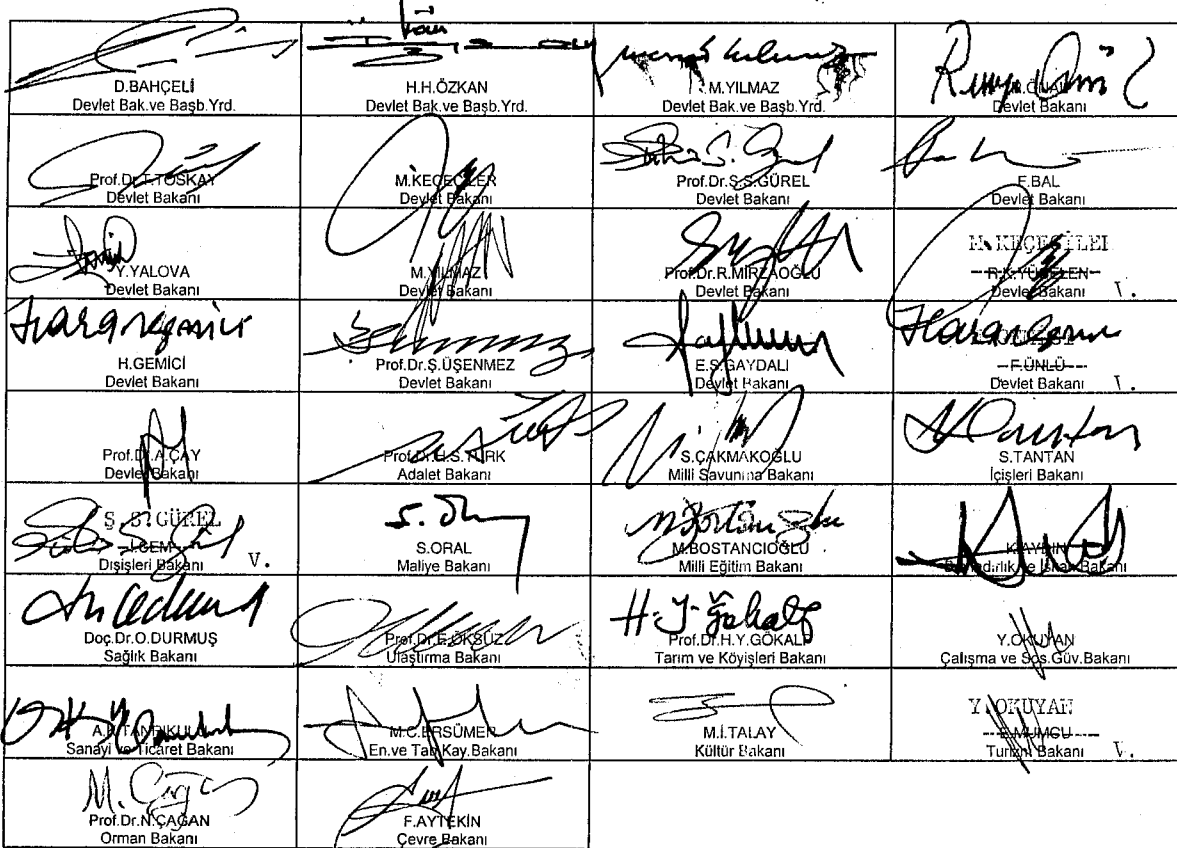 D.BAHÇELİ
Devlet Bak.ve Başb.Yrd.
H.H.ÖZKAN
Devlet Bak.ve Başb.Yrd.
M.YILMAZ
Devlet Bak.ve Başb.Yrd.
Devlet Bakanı
Prof.Dr.T.TOSKAY
Devlet Bakanı
M.KEÇECİLER
Devlet Bakanı
Prof.Dr.Ş.S.GÜREL
Devlet Bakanı
F.BAL
Devlet Bakanı
Y.YALOVA
Devlet Bakanı
M.YILMAZ
Devlet Bakanı
Prof.Dr.R.MİRZAOĞLU
Devlet Bakanı
M. KEÇECİLER
R.K.YÜCELEN
Devlet Bakanı
V.
H.GEMİCİ
Devlet Bakanı
Prof.Dr.Ş.ÜŞENMEZ
Devlet Bakanı
E.S.GAYDALI
Devlet Bakanı
F.ÜNLÜ
Devlet Bakanı
V.
Prof.Dr.A.ÇAY
Devlet Bakanı
Prof.Dr.H.S.TÜRK
Adalet Bakanı
S.ÇAKMAKOĞLU
Milli Savunma Bakanı
S.TANTAN
İçişleri Bakanı
Ş. S. GÜREL
İ.CEM
Dışişleri Bakanı
V.
S.ORAL
Maliye Bakanı
M.BOSTANCIOĞLU
Milli Eğitim Bakanı
K.AYDIN
Bayındırlık ve İskan Bakanı
Doç.Dr.O.DURMUŞ
Sağlık Bakanı
Prof.Dr.E.ÖKSÜZ
Ulaştırma Bakanı
H.Y.Gökalp
Prof.Dr.H.Y.GÖKALP
Tarım ve Köyişleri Bakanı
Y.OKUYAN
Çalışma ve Sos.Güv.Bakanı
A.K.TANRIKULU
Sanayi ve Ticaret Bakanı
M.C.ERSÜMER
En.ve Tab.Kay.Bakanı
M.İ.TALAY
Kültür Bakanı
Y.OKUYAN
E.MUMCU
Turizm Bakanı
V.
Prof.Dr.N.ÇAĞAN
Orman Bakanı
F.AYTEKİN
Çevre Bakanı